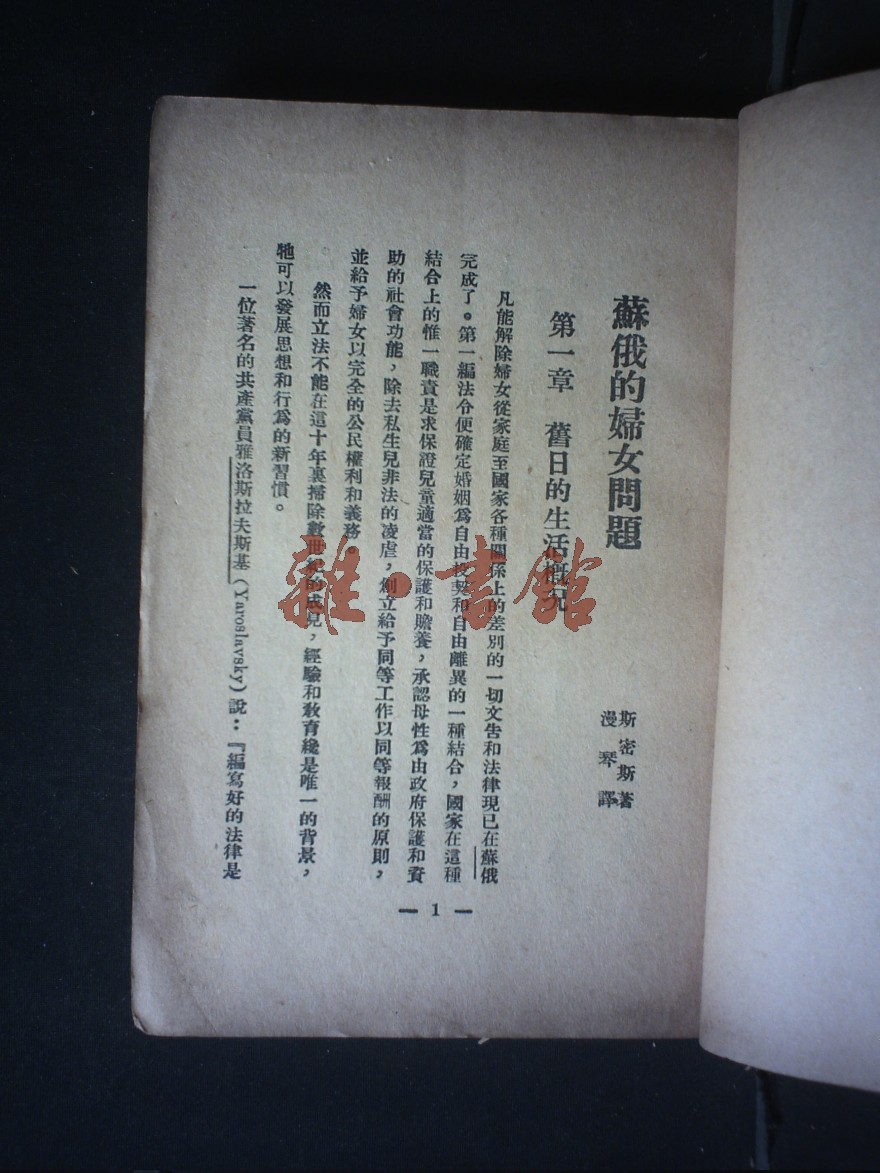 蘇俄的婦女問題
斯密斯著
漫琴譯
第一章 舊日的生活概況
凡能解除婦女從家庭至國家各種關係上的差別的一切文告和法律現已在蘇俄
完成了。第一編法令便確定婚姻爲自由投契和自由離異的一種結合，國家在這種
結合上的惟一職責是求保證兒童適當的保護和贍養，承認母性爲由政府保護和資
助的社會功能，除去私生兒非法的凌虐，創立給予同等工作以同等報酬的原則，
並給予婦女以完全的公民權利和義務。
然而立法不能在這十年裏掃除數世紀的成見，經驗和敎育纔是唯一的背景，
牠可以發展思想和行爲的新習慣。
一位著名的共產黨員雅洛斯拉夫斯基（Yaroslavsky）說：『編寫好的法律是
— 1 —
雜·書館